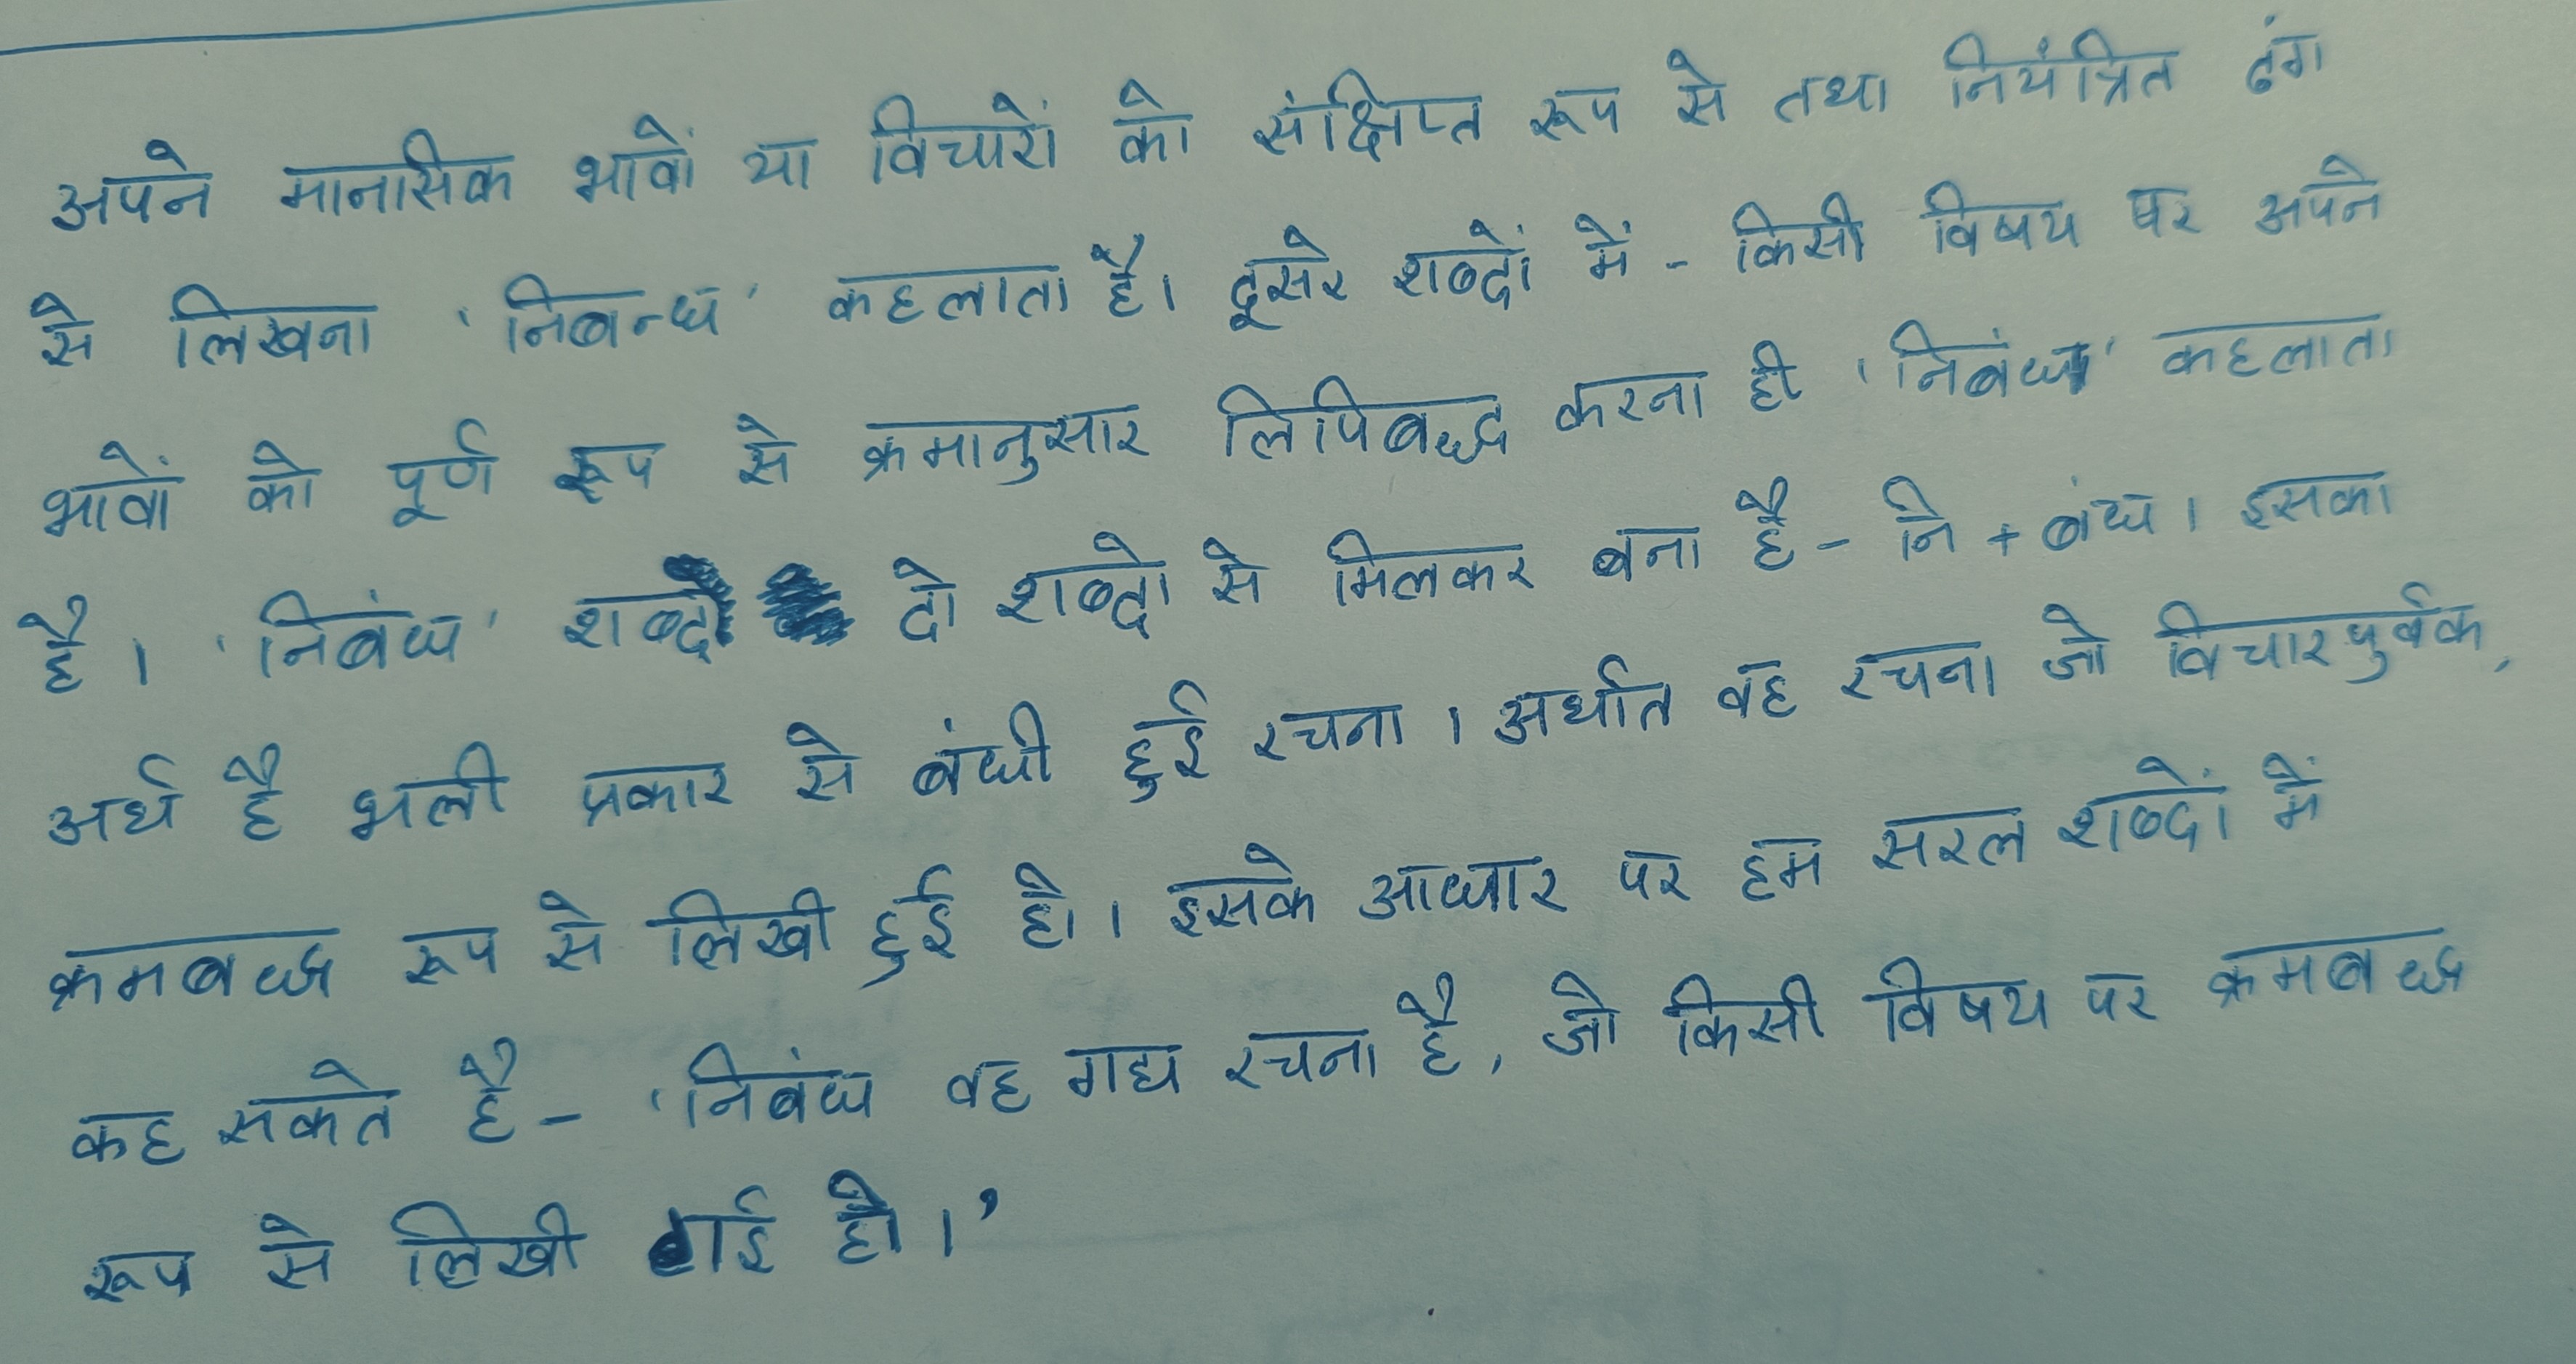 अपने मानसिक भावों या विचारों को संक्षिप्त रूप से तथा नियंत्रित ढंग
से लिखना 'निबन्ध' कहलाता है। दूसरे शब्दों में - किसी विषय पर अपने
भावों को पूर्ण रूप से क्रमानुसार लिपिबद्ध करना ही 'निबंध' कहलाता
है। 'निबंध' शब्द दो शब्दो से मिलकर बना है - नि + बंध। इसका
अर्थ है भली प्रकार से बंधी हुई रचना। अर्थात वह रचना जो विचारपुर्वक,
क्रमबद्ध रूप से लिखी हुई हो। इसके आधार पर हम सरल शब्दों में
कह सकते है - 'निबंध वह गद्य रचना है, जो किसी विषय पर क्रमबद्ध
रूप से लिखी गई हो।'